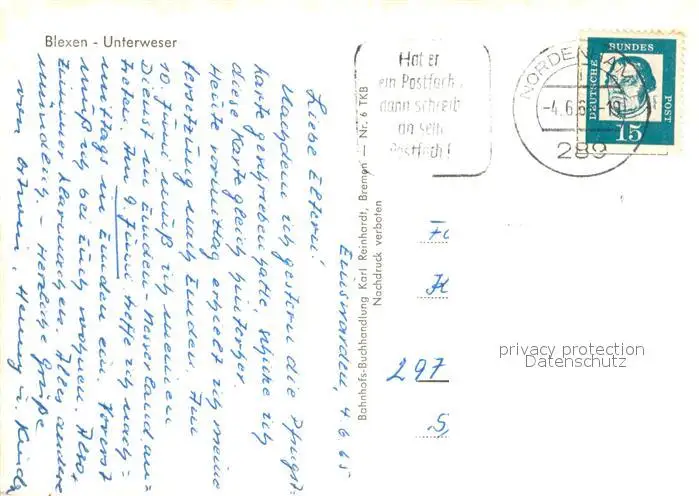 Blexen - Unterweser
Einswarden, 4.6.65
Liebe Eltern!
Nachdem ich gestern die Pfingst-
karte geschrieben hatte, schicke ich
diese Karte gleich hinterher.
Heute vormittag erhielt ich meine
Versetzung nach Emden. Am
10. Juni muß ich meinen
Dienst in Emden-Nesserland an-
treten. Am 9. Juni treffe ich nach-
mittags in Emden ein. Vorerst
muß ich bei Euch wohnen. Also
Zimmer klarmachen. Alles andere
mündlich. - Herzliche Grüße
von Henny u. Kind
Bahnhofs-Buchhandlung Karl Reinhardt, Bremen - Nr. 6 TKB
Nachdruck verboten
Hat er
ein Postfach,
dann schreib
an sein
Postfach!
NORDENHAM
-4.6.6 -19
289
DEUTSCHE
BUNDES
POST
15
297
privacy protection
Datenschutz